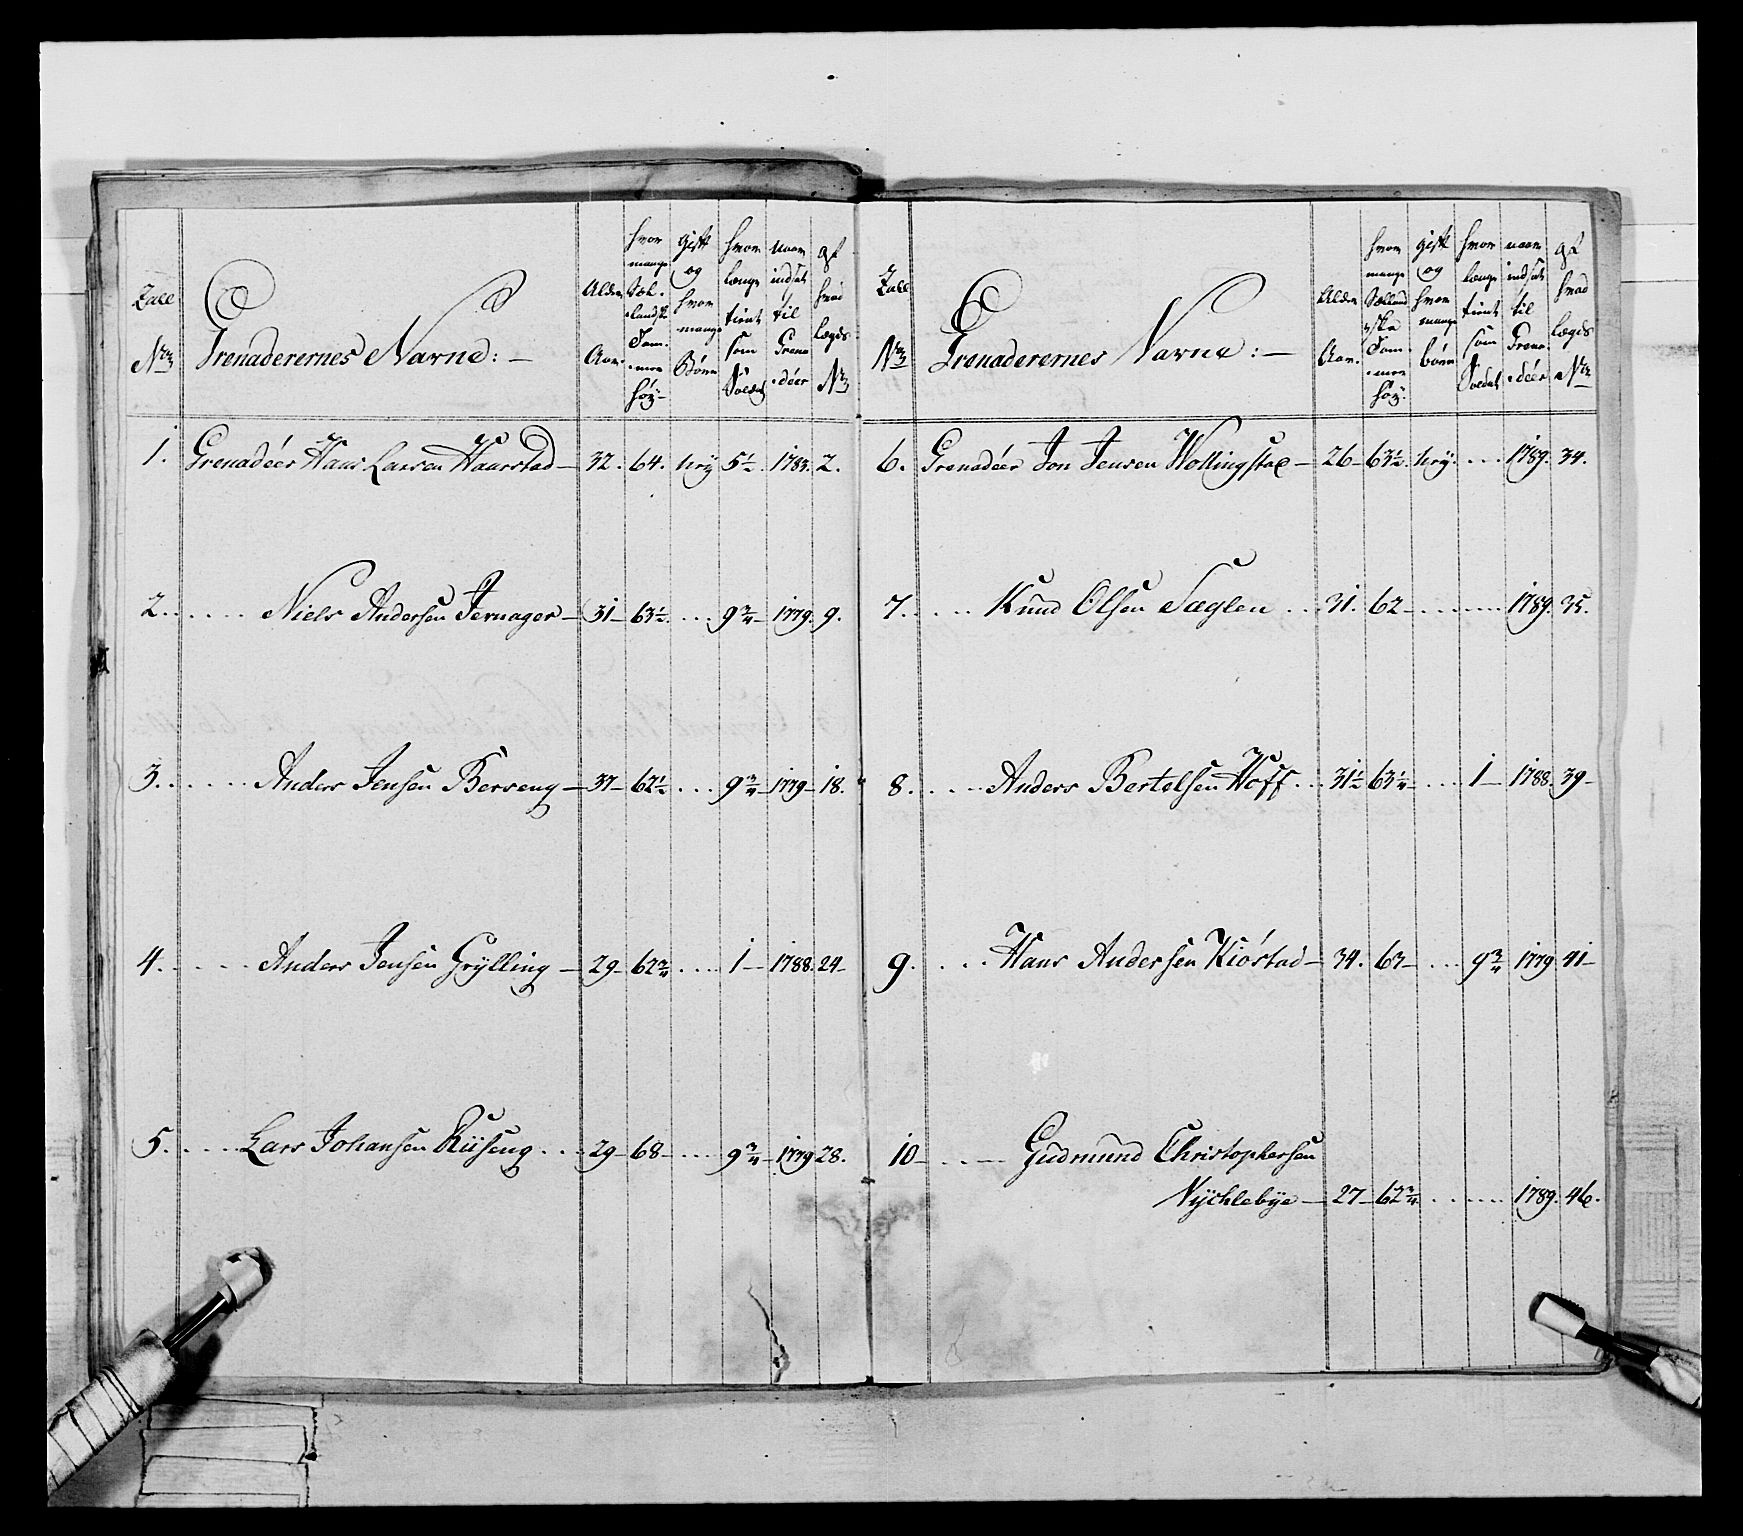 Zall
N
Grenaderernes Navne: —
Alder
Aar.
hvor
mange
Sæl-
landsk
Tom-
mer
høÿ
gift
og
hvor
mange
Børn
hvor
længe
tient
som
Soldat
naar
indsat
til
Grena-
deer
af
hvad
lægds
N
1. Grenadéer Hans Larsen Haarstad — 32. 64. neÿ 5½. 1783. 2.
2. . . . . . Niels Andersen Jernager — 31 — 63½. . . . 9¾ — 1779. 9.
3. . . . . . Anders Jensen Berseng — 37 — 62½. . . . 9¾ — 1779 — 18.
4. . . . . . Anders Jensen Grÿlling — 29 — 62¾. . . . 1 — 1788. 24 —
5. . . . . . Lars Johansen Riiseng . . . 29 — 68 — . . . 9¾ — 1779 28.
Zall
N
Grenaderernes Navne: —
Alder
Aar.
hvor
mange
Sælland
ske
Tom-
mer
høÿ.
gift
og
hvor
mange
børn
hvor
længe
tient
som
Soldat
naar
indsat
til
Grena-
déer
af
hvad
lægds
N
6. Grenadéer Jon Jensen Wollingstae — 26 — 63½. neÿ. . . . 1789. 34.
7. . . . . Knud Olsen Sæglen . . 31. 62 — . . . . . . 1789. 35.
8. . . . . . Anders Bertelsen Hoff . . 31½ 63¼ — . . . 1 — 1788. 39 —
9. . . . . Hans Andersen Kiøstad — 34. 63 — . . . 9¾ 1779 41 —
10 — . . — Gudmund Christophersen
Nÿchlebÿe — 27 — 62¾. . . . . . 1789. 46.